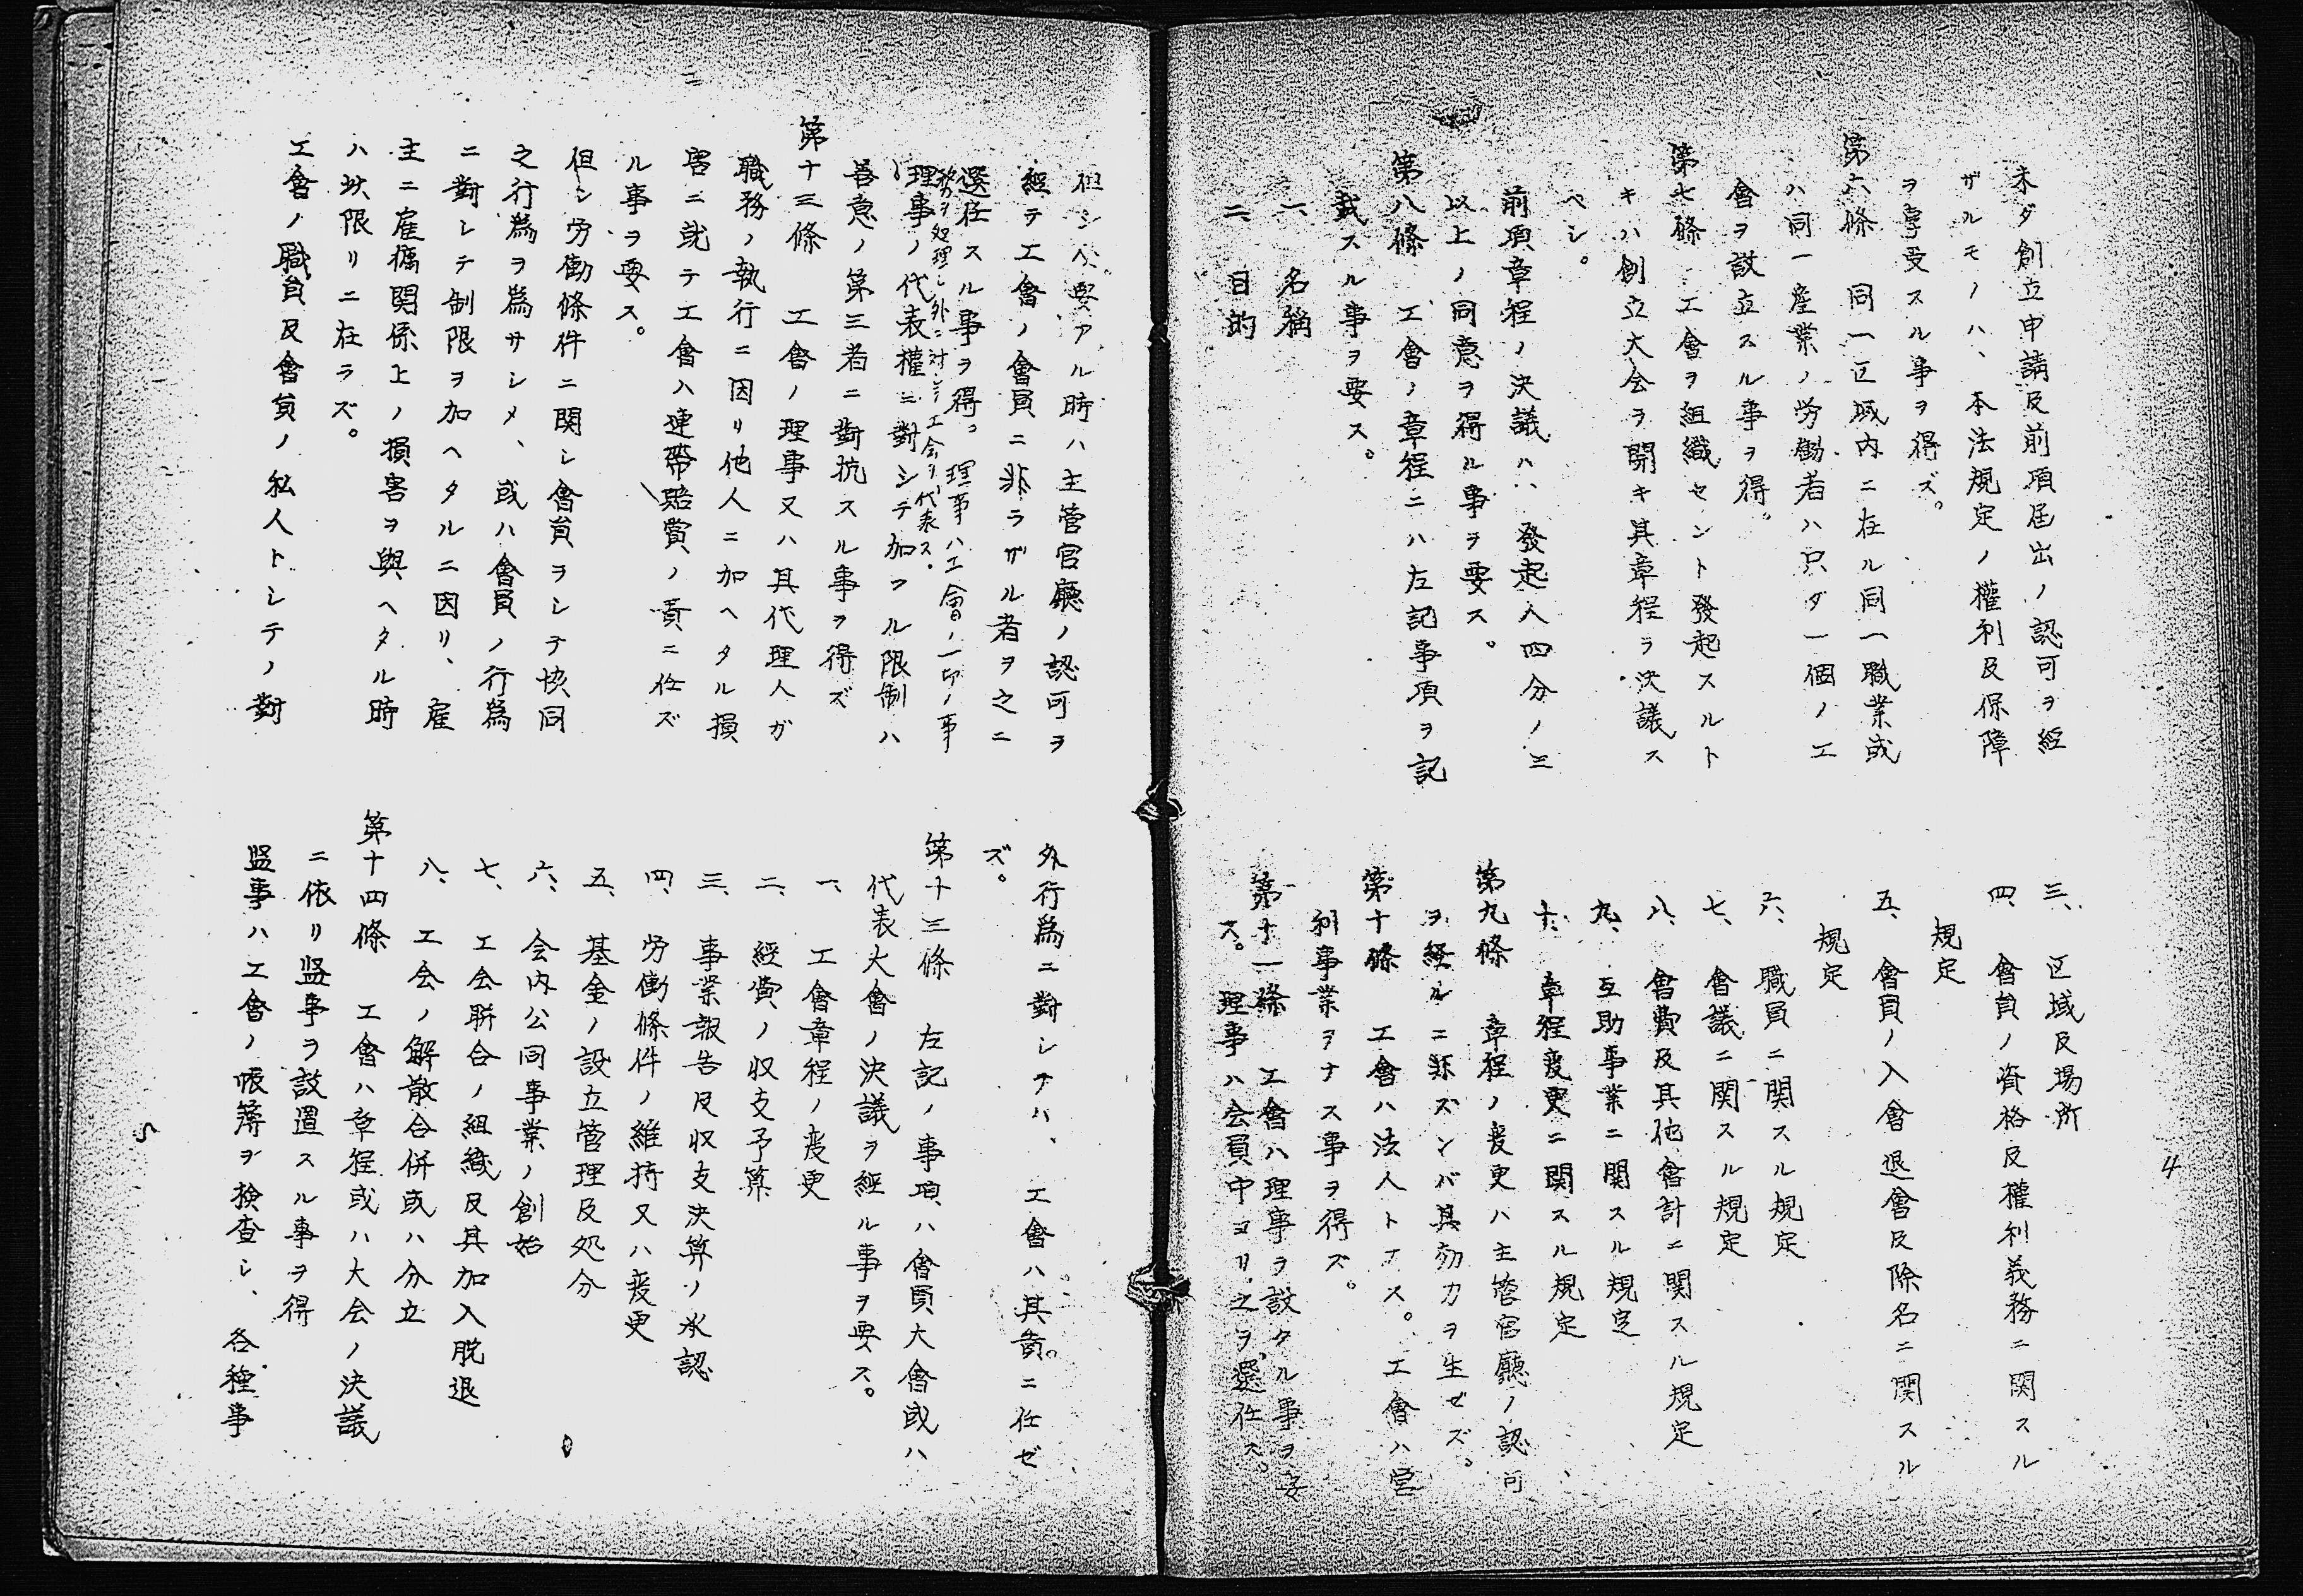 4
未ダ創立申請及前項届出ノ認可ヲ経
ザルモノハ、本法規定ノ權利及保障
ヲ享受スル事ヲ得ズ。
第六條　同一区域内ニ在ル同一職業或
ハ同一産業ノ労働者ハ只ダ一個ノ工
會ヲ設立スル事ヲ得。
第七條　工會ヲ組織セント發起スルト
キハ創立大会ヲ開キ其章程ヲ決議ス
ベシ。
前項章程ノ決議ハ、發起人四分ノ三
以上ノ同意ヲ得ル事ヲ要ス。
第八條　工會ノ章程ニハ左記事項ヲ記
載スル事ヲ要ス。
一、名稱
二、目的
三、区域及場所
四、會員ノ資格及權利義務ニ関スル
規定
五、會員ノ入會退會及除名ニ関スル
規定
六、職員ニ関スル規定
七、會議ニ関スル規定
八、會費及其他會計ニ関スル規定
九、互助事業ニ関スル規定
十、章程変更ニ関スル規定
第九條　章程ノ変更ハ主管官廳ノ認可
ヲ経ルニ非ズンバ其効力ヲ生ゼズ。
第十條　工會ハ法人トナス。工會ハ営
利事業ヲナス事ヲ得ズ。
第十一條　工會ハ理事ヲ設クル事ヲ要
ス。理事ハ会員中ヨリ之ヲ選任ス。
但シ必要アル時ハ主管官廳ノ認可ヲ
經テ工會ノ會員ニ非ラザル者ヲ之ニ
選任スル事ヲ得。理事ハ工會ノ一切ノ事
務ヲ処理シ外ニ対シテ工会ヲ代表ス。
理事ノ代表權ニ對シテ加フル限制ハ
善意ノ第三者ニ對抗スル事ヲ得ズ
第十三條　工會ノ理事又ハ其代理人ガ
職務ノ執行ニ因リ他人ニ加ヘタル損
害ニ就テ工會ハ連帶賠償ノ責ニ任ズ
ル事ヲ要ス。
但シ労働條件ニ関シ會員ヲシテ協同
之行為ヲ為サシメ、或ハ會員ノ行為
ニ對シテ制限ヲ加ヘタルニ因リ、雇
主ニ雇傭関係上ノ損害ヲ與ヘタル時
ハ此限リニ在ラズ。
工會ノ職員及會員ノ私人トシテノ對
外行為ニ對シテハ、工會ハ其責ニ任ゼ
ズ。
第十三條　左記ノ事項ハ會員大會或ハ
代表大會ノ決議ヲ經ル事ヲ要ス。
一、工會章程ノ変更
二、経費ノ収支予算
三、事業報告及収支決算ノ承認
四、労働條件ノ維持又ハ変更
五、基金ノ設立管理及処分
六、会内公同事業ノ創始
七、工会聯合ノ組織及其加入脱退
八、工会ノ解散合併或ハ分立
第十四條　工會ハ章程或ハ大会ノ決議
ニ依リ監事ヲ設置スル事ヲ得
監事ハ工會ノ帳簿ヲ檢査シ、各種事
5